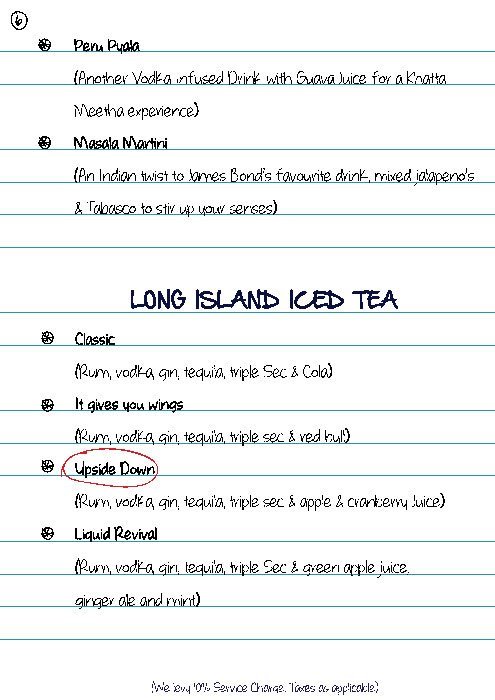 6
Peru Pyala
(Another Vodka infused Drink with Guava Juice for a Khatta
Meetha experience)
Masala Martini
(An Indian twist to James Bond's favourite drink, mixed jalapeno's
& Tabasco to stir up your senses)
LONG ISLAND ICED TEA
Classic
(Rum, vodka, gin, tequila, triple Sec & Cola)
It gives you wings
(Rum, vodka, gin, tequila, triple sec & red bull)
Upside Down
(Rum, vodka, gin, tequila, triple sec & apple & cranberry Juice)
Liquid Revival
(Rum, vodka, gin, tequila, triple Sec & green apple juice,
ginger ale and mint)
(We levy 10% Service Charge. Taxes as applicable)